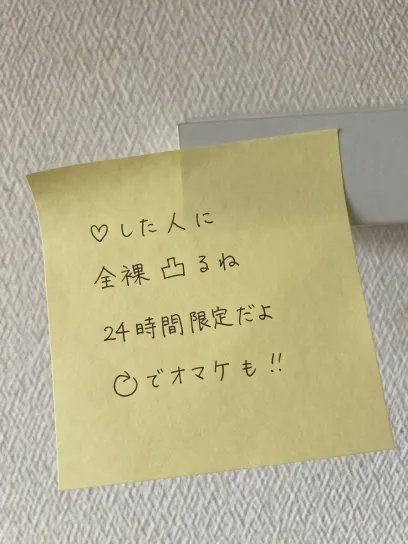 ♡した人に
全裸凸るね
24時間限定だよ
↻でオマケも!!